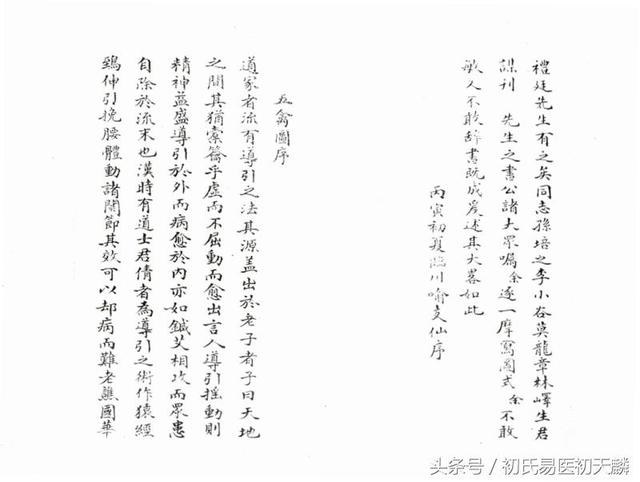 禮廷先生有之矣同志孫培之李小谷莫龍章林嶧生君
謀刊 先生之書公諸大眾囑余逐一摩寫圖式余不敢
敏人不敢辞書既成爰述其大畧如此
丙寅初夏臨川喻支仙序
五禽圖序
道家者流有導引之法其源盖出於老子者子曰天地
之間其猶橐籥乎虛而不屈動而愈出言人導引摇動則
精神益盛導引於外而病愈於內亦如鍼艾相攻而眾患
自除於流末也漢時有道士君倩者為導引之術作猿經
鴟伸引挽腰體動諸関節其效可以却病而難老譙國華
头条号／初氏易医初天麟